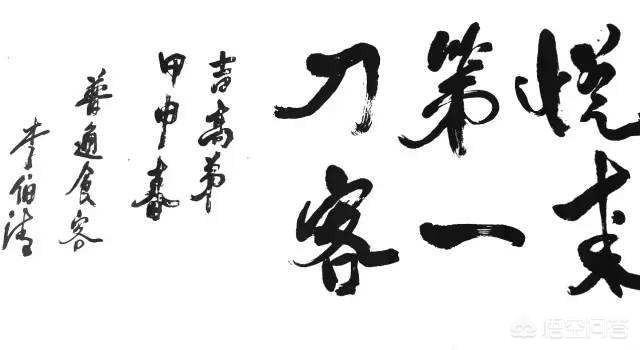 悦来
第一
刀客
吉高弟
甲申春
普通食客
李伯清
悟空问答